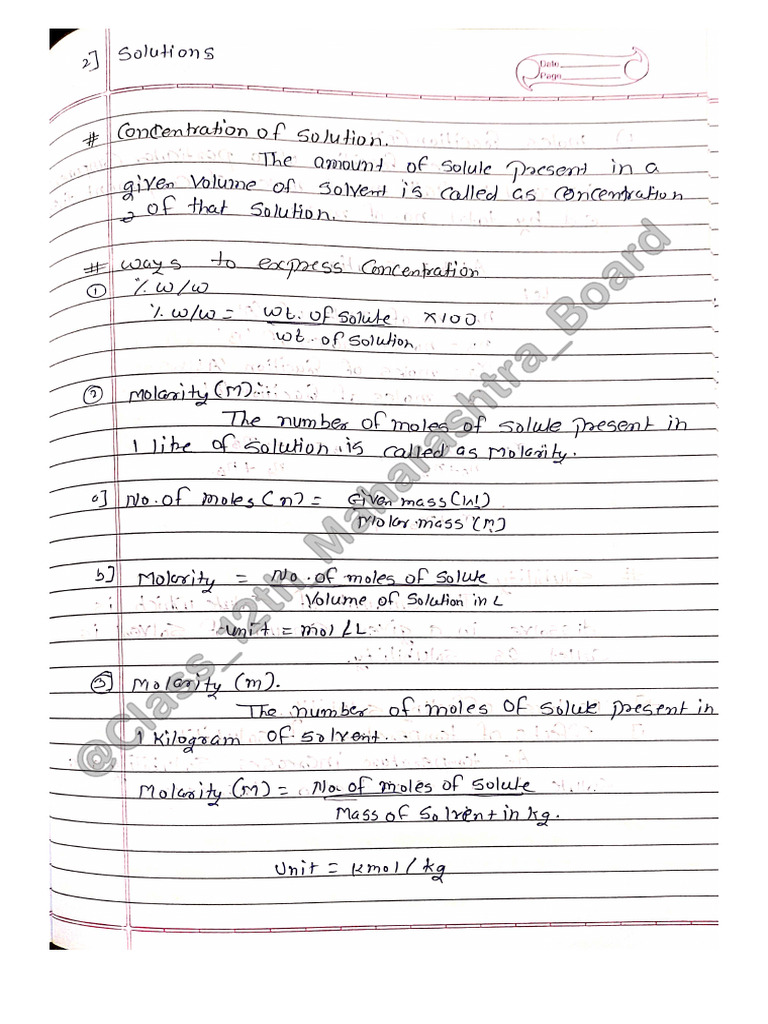 2] Solutions
Date
Page
# Concentration of Solution.
The amount of solute present in a
given volume of solvent is called as concentration
of that solution.
# ways to express concentration
① % w/w
% w/w = wt. of solute x100
wt. of solution
② Molarity (M):
The number of moles of solute present in
1 litre of solution is called as molarity.
a] No. of moles (n) = Given mass (W)
Molar mass (M)
b] Molarity = No. of moles of solute
Volume of solution in L
Unit = mol/L
③ Molarity (m).
The number of moles of solute present in
1 kilogram of solvent.
Molarity (M) = No. of moles of solute
Mass of solvent in kg.
Unit = kmol/kg
@Class_12th_Maharashtra_Board